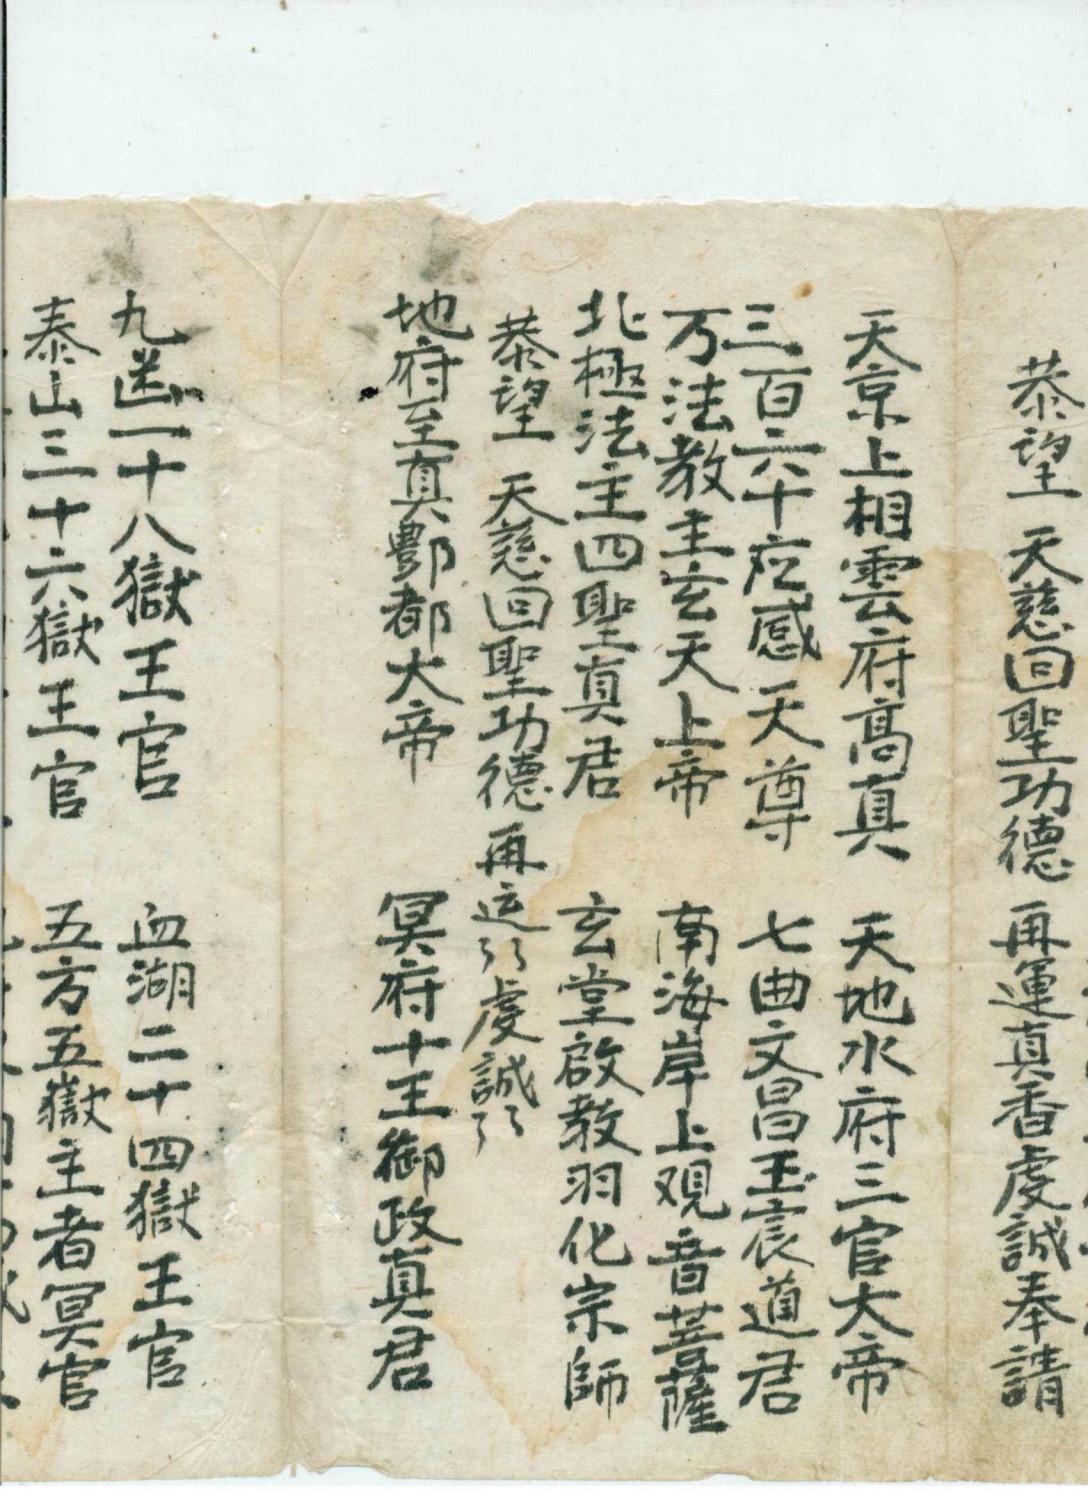 恭望　天慈回聖功德　再運真香虔誠奉請
天京上相雲府高真　天地水府三官大帝
三百六十应感天尊　七曲文昌玉宸道君
万法教主玄天上帝　南海岸上观音菩薩
北極法主四聖真君　玄堂啟教羽化宗師
恭望　天慈回聖功德　再运了了虔誠了了
地府至真酆都大帝　冥府十王御政真君
九幽一十八獄王官　血湖二十四獄王官
泰山三十六獄王官　五方五嶽主者冥官